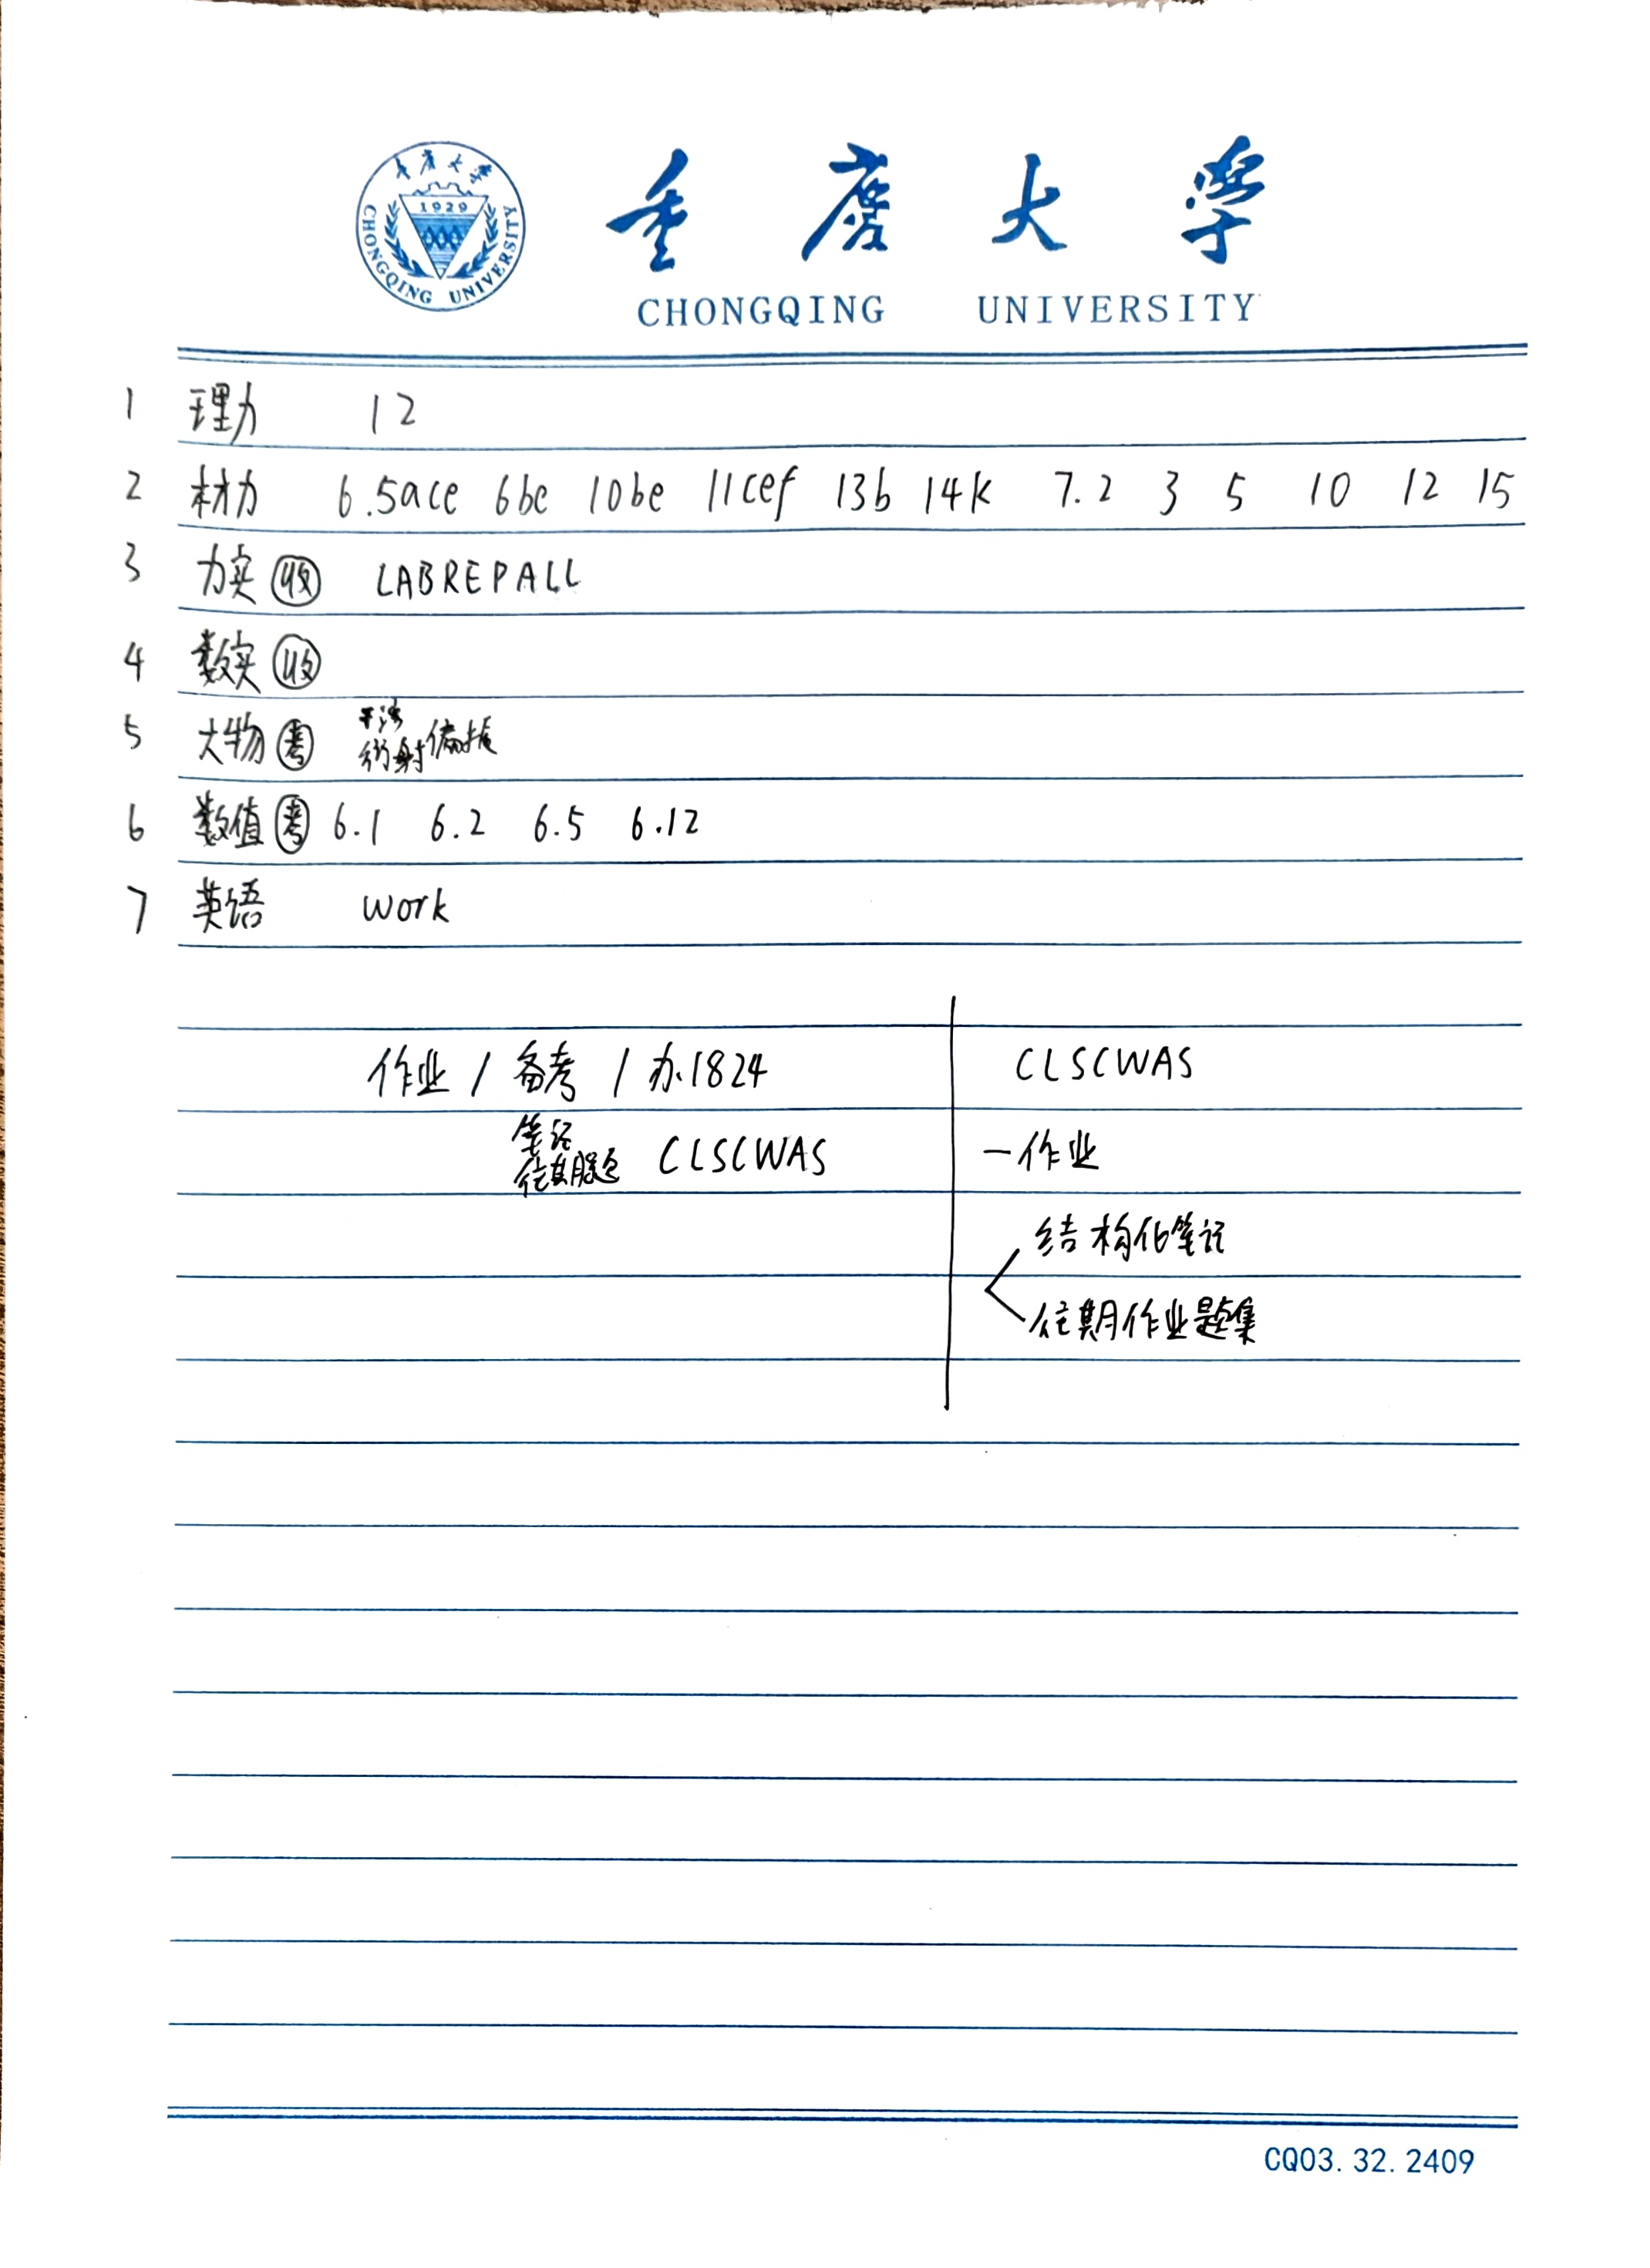 重庆大学
1929
CHONGQING UNIVERSITY
重庆大学
CHONGQING UNIVERSITY
1 理力 12
2 材力 6.5ace 6be 10be 11cef 13b 14k 7.2 3 5 10 12 15
3 力实 收 LABREPALL
4 数实 收
5 大物 考 干涉 衍射 偏振
6 数值 考 6.1 6.2 6.5 6.12
7 英语 work
作业 / 备考 / 办1824
笔记
往期题 CLSCWAS
CLSCWAS
一作业
结构化笔记
往期作业题集
CQ03.32.2409